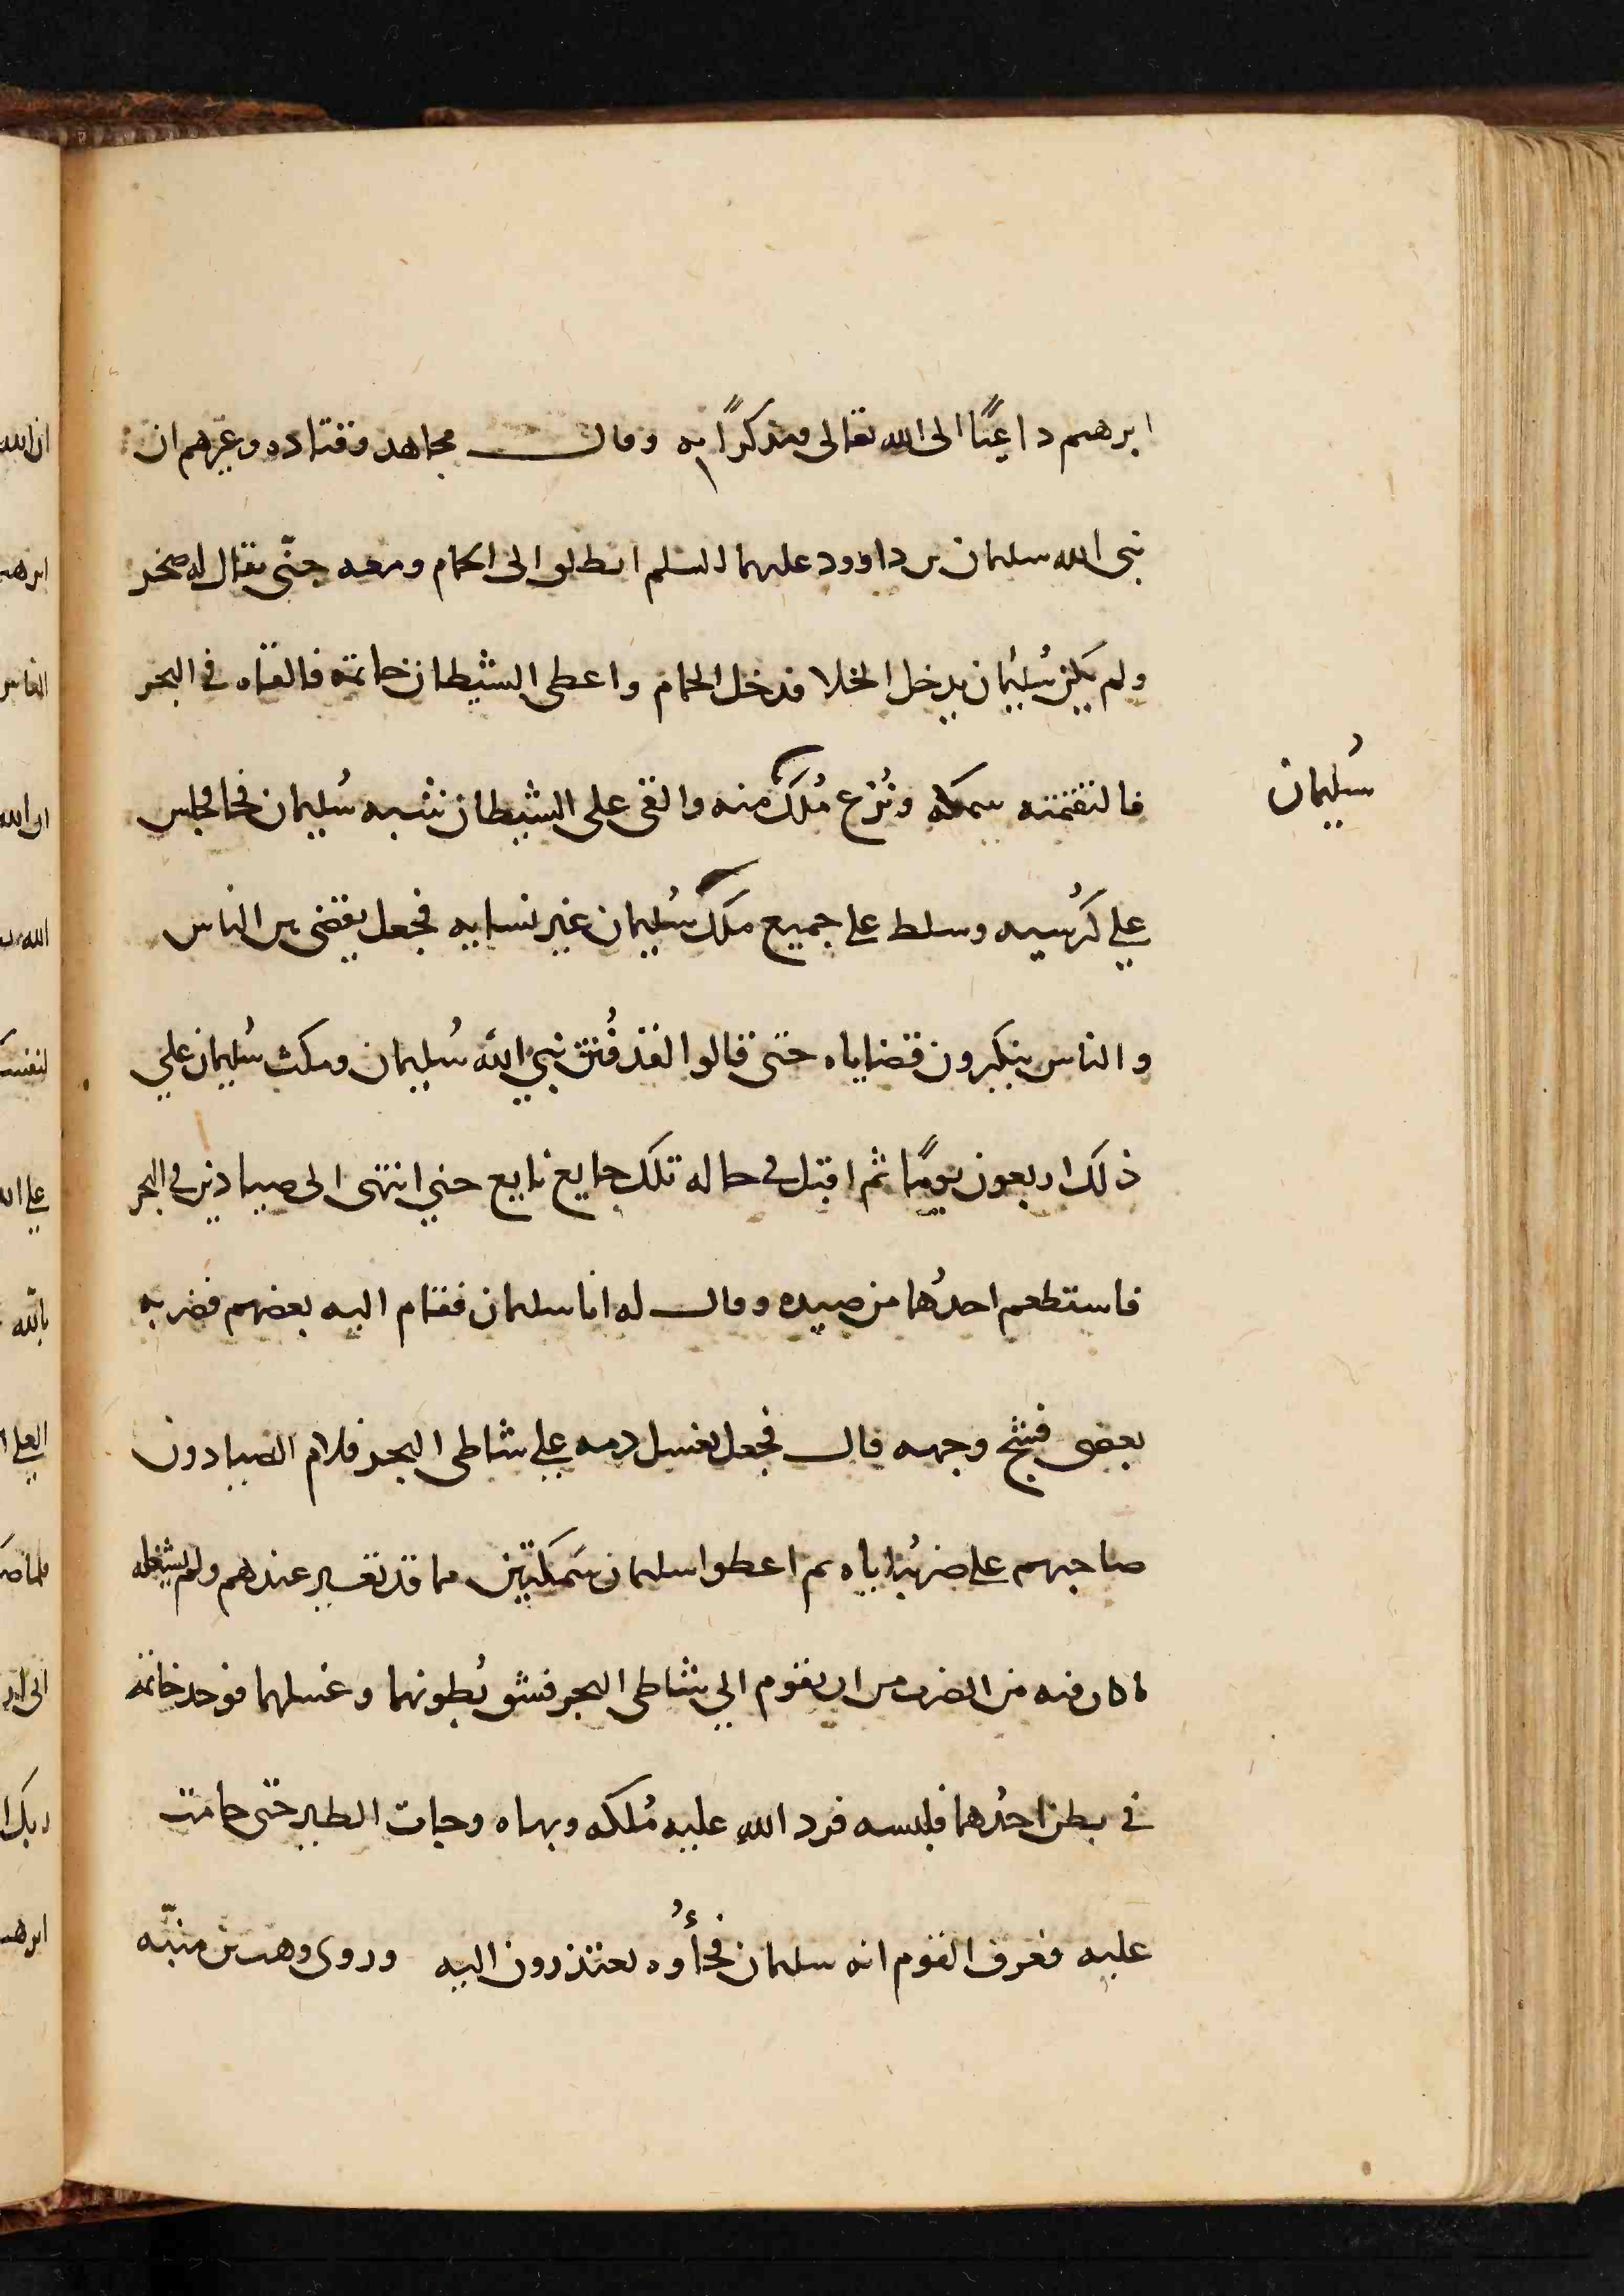 ابرهيم داعيًا الى الله تعالى ومتذكرًا به وقال مجاهد وقتاده وغيرهم ان
نبى الله سليمان بن داوود عليهما السلم انطلق الى الحمام ومعه جنّى يقال له صخر
ولم يكن سُليمان يدخل الخلا فدخل الحمام واعطى الشيطان خاتمه فالقاه فى البحر
فالتقمته سمكه ونُزع مُلك منه والقى على الشيطان شبه سُليمان فجا فجلس
سُليمان
علي كرُسيه وسلط على جميع ملك سُليمان غير نسايه فجعل يقضى بين الناس
والناس ينكرون قضاياه حتى قالوا لقد فُتن نبيّ الله سُليمان ومكث سُليمان علي
ذلك اربعون يومًا ثم اقبل فى حاله تلك جايع تايع حتي انتهى الى صيادين فى البحر
فاستطعم احدُهما من صيده وقال له انا سليمان فقام اليه بعضهم فضربه
بعضى فشج وجهه قال فجعل يغسل دمه علي شاطى البحر فلام الصيادون
صاحبهم على ضربُه اياه ثم اعطوا سليمان سَمكتين مما قد تغير عندهم ولم يشغله
ما كان فيه من الضرب من ان يقوم الي شاطى البحر فشق بُطونهما وغسلهما فوجد خاتمه
فى بطن احدُهما فلبسه فرد الله عليه مُلكه وبهاه وجات الطير حتى حامت
عليه فعرف القوم انه سليمان فجأُوه يعتذرون اليه وروى وهب بن منبّه